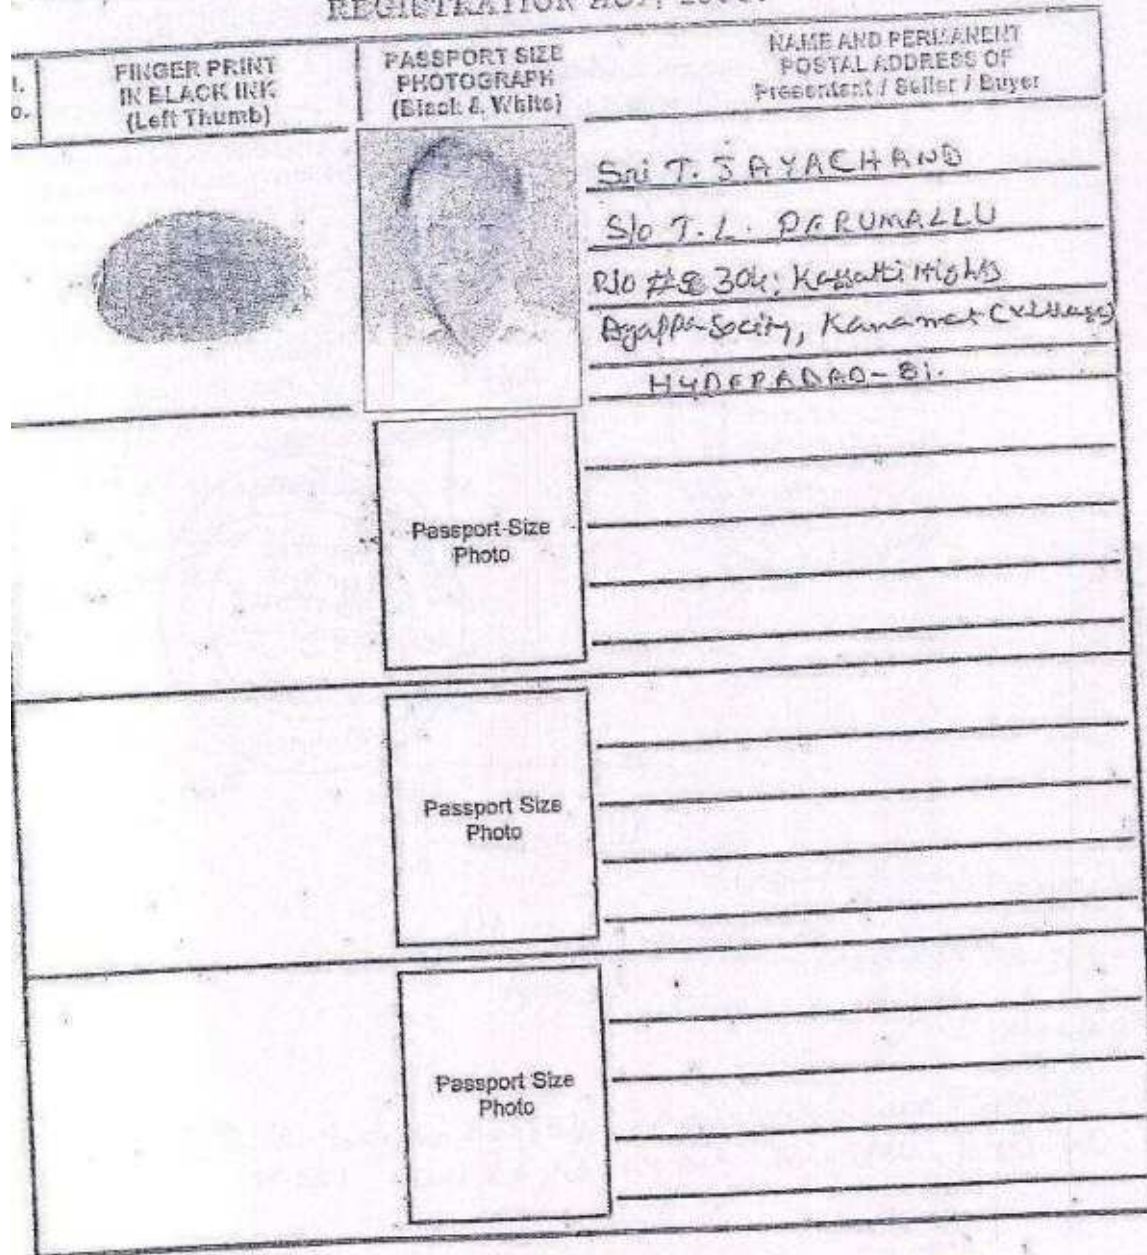 REGISTRATION ACT,
FINGER PRINT
IN BLACK INK
(Left Thumb)
PASSPORT SIZE
PHOTOGRAPH
(Black & White)
NAME AND PERMANENT
POSTAL ADDRESS OF
Presentant / Seller / Buyer
Sri T. JAYACHAND
S/o T.L. PERUMALLU
R/o # 304,
Society, Kanamet (Village)
HYDERABAD-81.
Passport Size
Photo
Passport Size
Photo
Passport Size
Photo